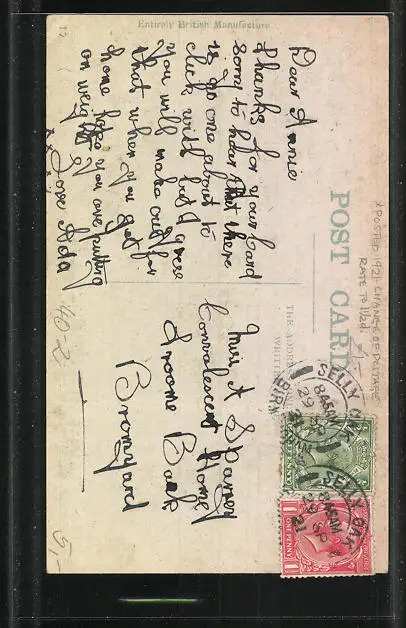 Entirely British Manufacture
POST CARD
X POSTED 1921 - CHANGE OF POSTAGE
RATE TO 1½d.
THE ADDRESS
Dear Annie
Thanks for your card
sorry to hear that there
is no one about to
click with but I guess
you will make up for
that when you get
home hope you are putting
on weight
xx Love Ada
Miss A Sparey
Convalescent Home
Froome Bank
Bromyard
SELLY OAK
BIRM
8 45AM
29 SP
21
SELLY OAK
8 45AM
29 SP
21
ONE PENNY
40-2
5,-